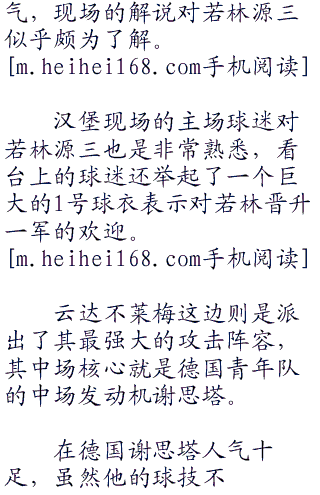 气，现场的解说对若林源三
似乎颇为了解。
[m.heihei168.com手机阅读]
汉堡现场的主场球迷对
若林源三也是非常熟悉，看
台上的球迷还举起了一个巨
大的1号球衣表示对若林晋升
一军的欢迎。
[m.heihei168.com手机阅读]
云达不莱梅这边则是派
出了其最强大的攻击阵容，
其中场核心就是德国青年队
的中场发动机谢思塔。
在德国谢思塔人气十
足，虽然他的球技不